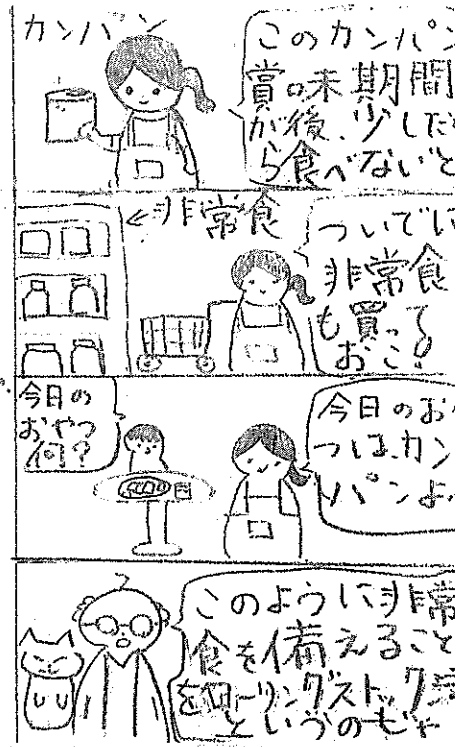 カンパン
このカンパン
賞味期間
が後、少しだ
ら食べないと
←非常食
ついでに
非常食
も買って
おこ!
今日の
おやつ
何?
今日のお
つは、カン
パンよ
このように非常
食を備えること
をローリングストック
というのじゃ